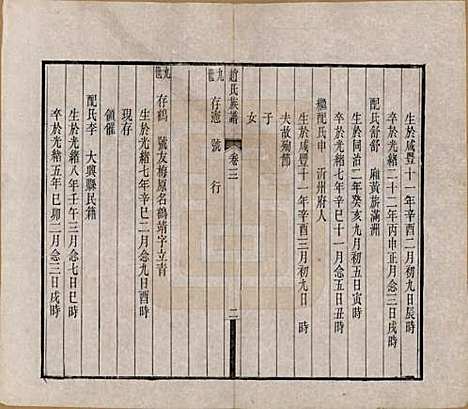 生於咸豐十一年辛酉二月初九日辰時
卒於光緒二十二年丙申正月念三日戌時
配氏舒舒 廂黃旗滿洲
生於同治二年癸亥九月初五日寅時
卒於光緒七年辛巳十一月念五日丑時
繼配氏申 沂州府人
生於咸豐十一年辛酉三月初九日 時
夫故殉節
子
女
趙氏族譜 卷三 二
九世 存憲 號 行
九世 存鶴 號友梅原名鶴靖字立青
生於光緒七年辛巳二月念九日酉時
現存
配氏李 大興縣民籍
領催
生於光緒八年壬午三月念七日巳時
卒於光緒五年己卯二月念三日戌時